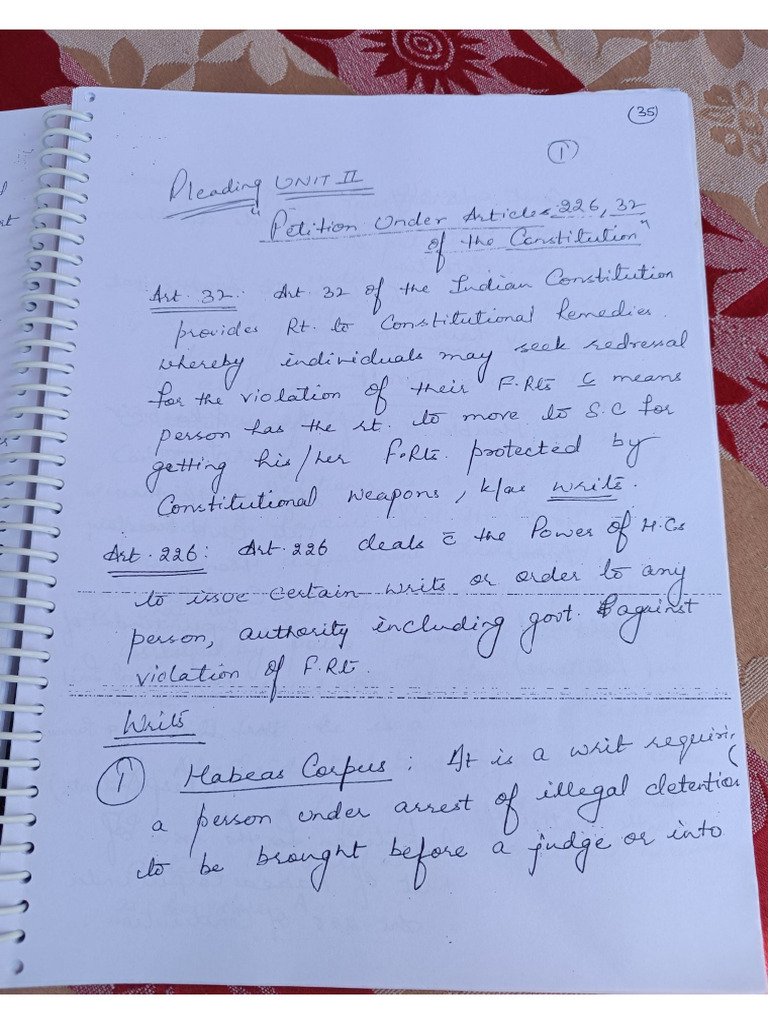 (35)
(1)
Pleading UNIT II
"Petition Under Articles 226, 32
of the Constitution"
Art. 32: Art. 32 of the Indian Constitution
provides Rt. to Constitutional Remedies.
whereby individuals may seek redressal
for the violation of their F.Rts c means
person has the rt. to move to S.C for
getting his/her F.Rts. protected by
Constitutional weapons, k/as writs.
Art. 226: Art. 226 deals c̄ the Power of H.Cs
to issue certain writs or order to any
person, authority including govt. against
violation of F.Rts.
Writs
(1) Habeas Corpus: It is a writ requiri
a person under arrest of illegal detention
to be brought before a judge or into